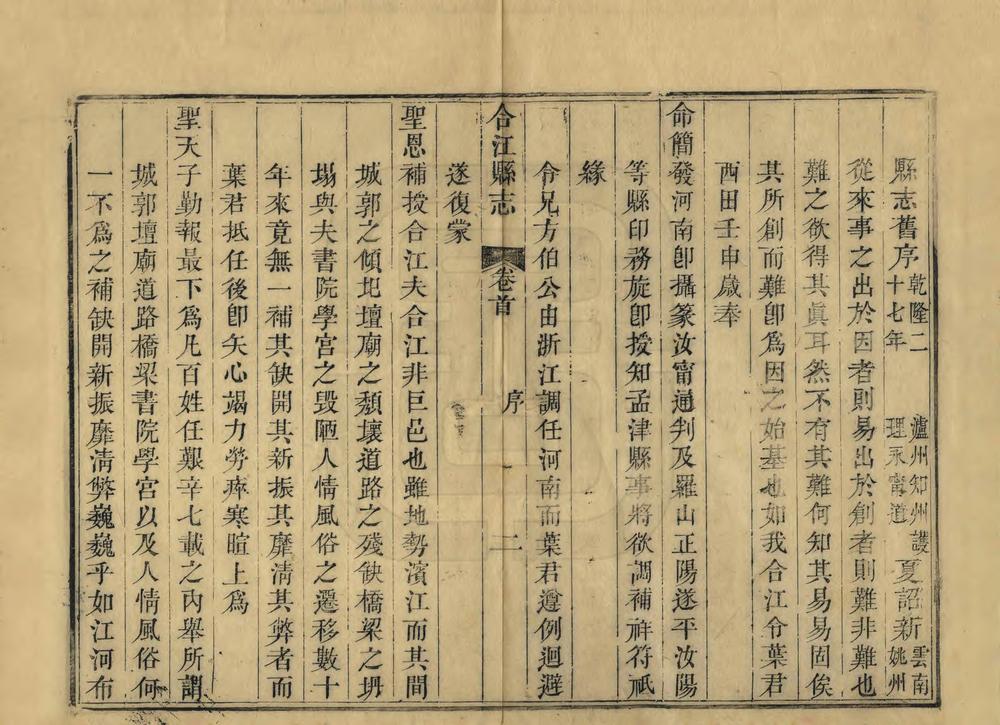 縣志舊序乾隆二十七年 瀘州知州護理永甯道夏詔新雲南姚州
從來事之出於因者則易出於創者則難非難也
難之欲得其眞耳然不有其難何知其易易固俟
其所創而難卽爲因之始基也如我合江令葉君
西田壬申歲奉
命簡發河南卽攝篆汝甯通判及羅山正陽遂平汝陽
等縣印務旋卽授知孟津縣事將欲調補祥符祇
緣
令兄方伯公由浙江調任河南而葉君遵例迴避
合江縣志 卷首 序 二
遂復蒙
聖恩補授合江夫合江非巨邑也雖地勢濱江而其間
城郭之傾圮壇廟之頹壞道路之殘缺橋梁之坍
塌與夫書院學宮之毀陋人情風俗之遷移數十
年來竟無一補其缺開其新振其靡清其弊者而
葉君抵任後卽矢心竭力勞瘁寒暄上爲
聖天子勤報最下爲凡百姓任艱辛七載之內舉所謂
城郭壇廟道路橋梁書院學宮以及人情風俗何
一不爲之補缺開新振靡清弊巍巍乎如江河布